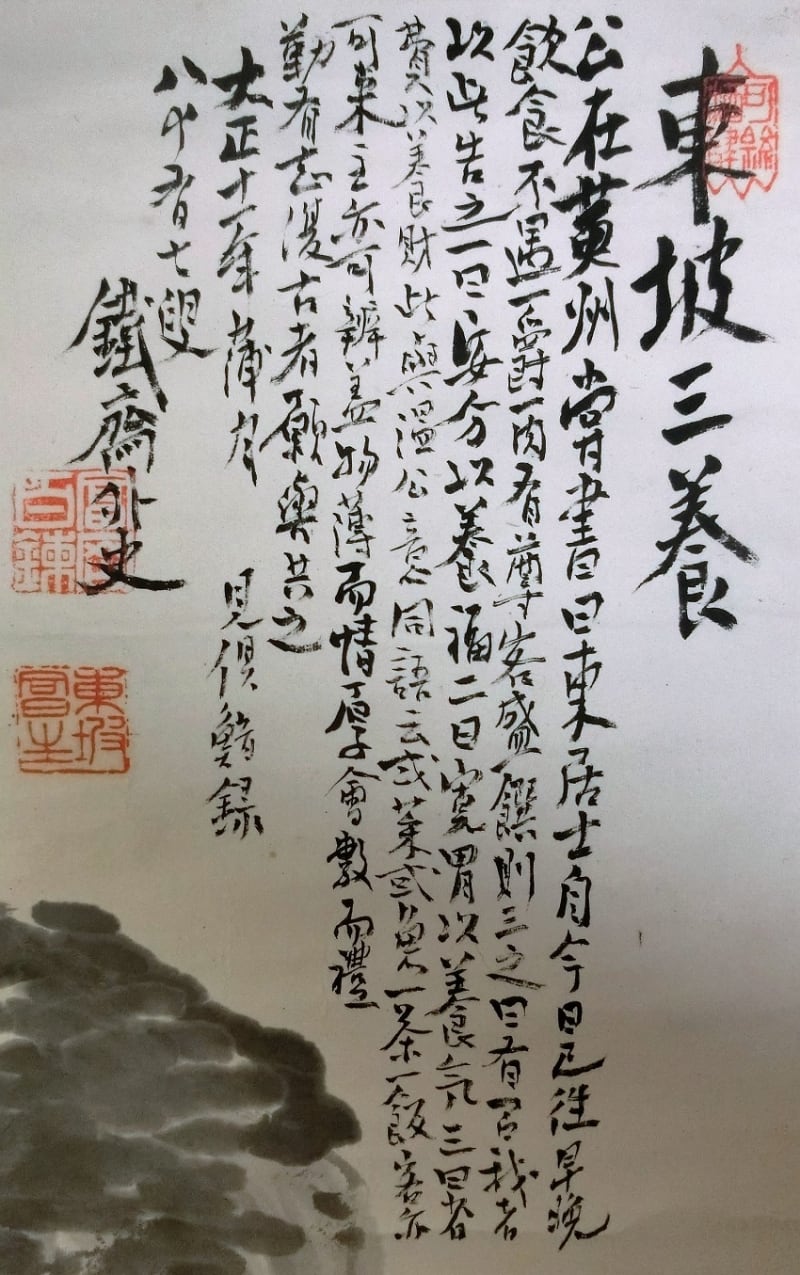 東坡三養
公在黄州嘗書曰東居士自今日已往早晩
飲食不過一爵一肉有尊客盛饌則三之曰有召我者
以此告之一曰安分以養福二曰寛胃以養氣三曰省
費以養財此與温公意同語云或菜或魚一茶一飯客亦
可来主亦可辨盖物薄而情厚會數而禮
勤有志復古者願與共之
大正十一年蒲月 見侯鯖録
八十有七叟
鐵齋外史
富岡百錬
東坡同日生